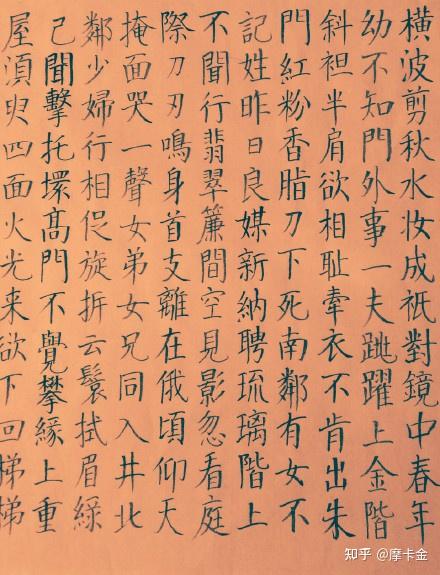 橫波剪秋水妆成祇對鏡中春年
幼不知門外事一夫跳躍上金階
斜袒半肩欲相耻牽衣不肯出朱
門紅粉香脂刀下死南鄰有女不
記姓昨日良媒新納聘琉璃階上
不聞行翡翠簾間空見影忽看庭
際刀刃鳴身首支離在俄頃仰天
掩面哭一聲女弟女兄同入井北
鄰少婦行相促旋拆云鬟拭眉綠
己聞擊托壞高門不覺攀緣上重
屋須臾四面火光来欲下回梯梯
知乎 @摩卡金